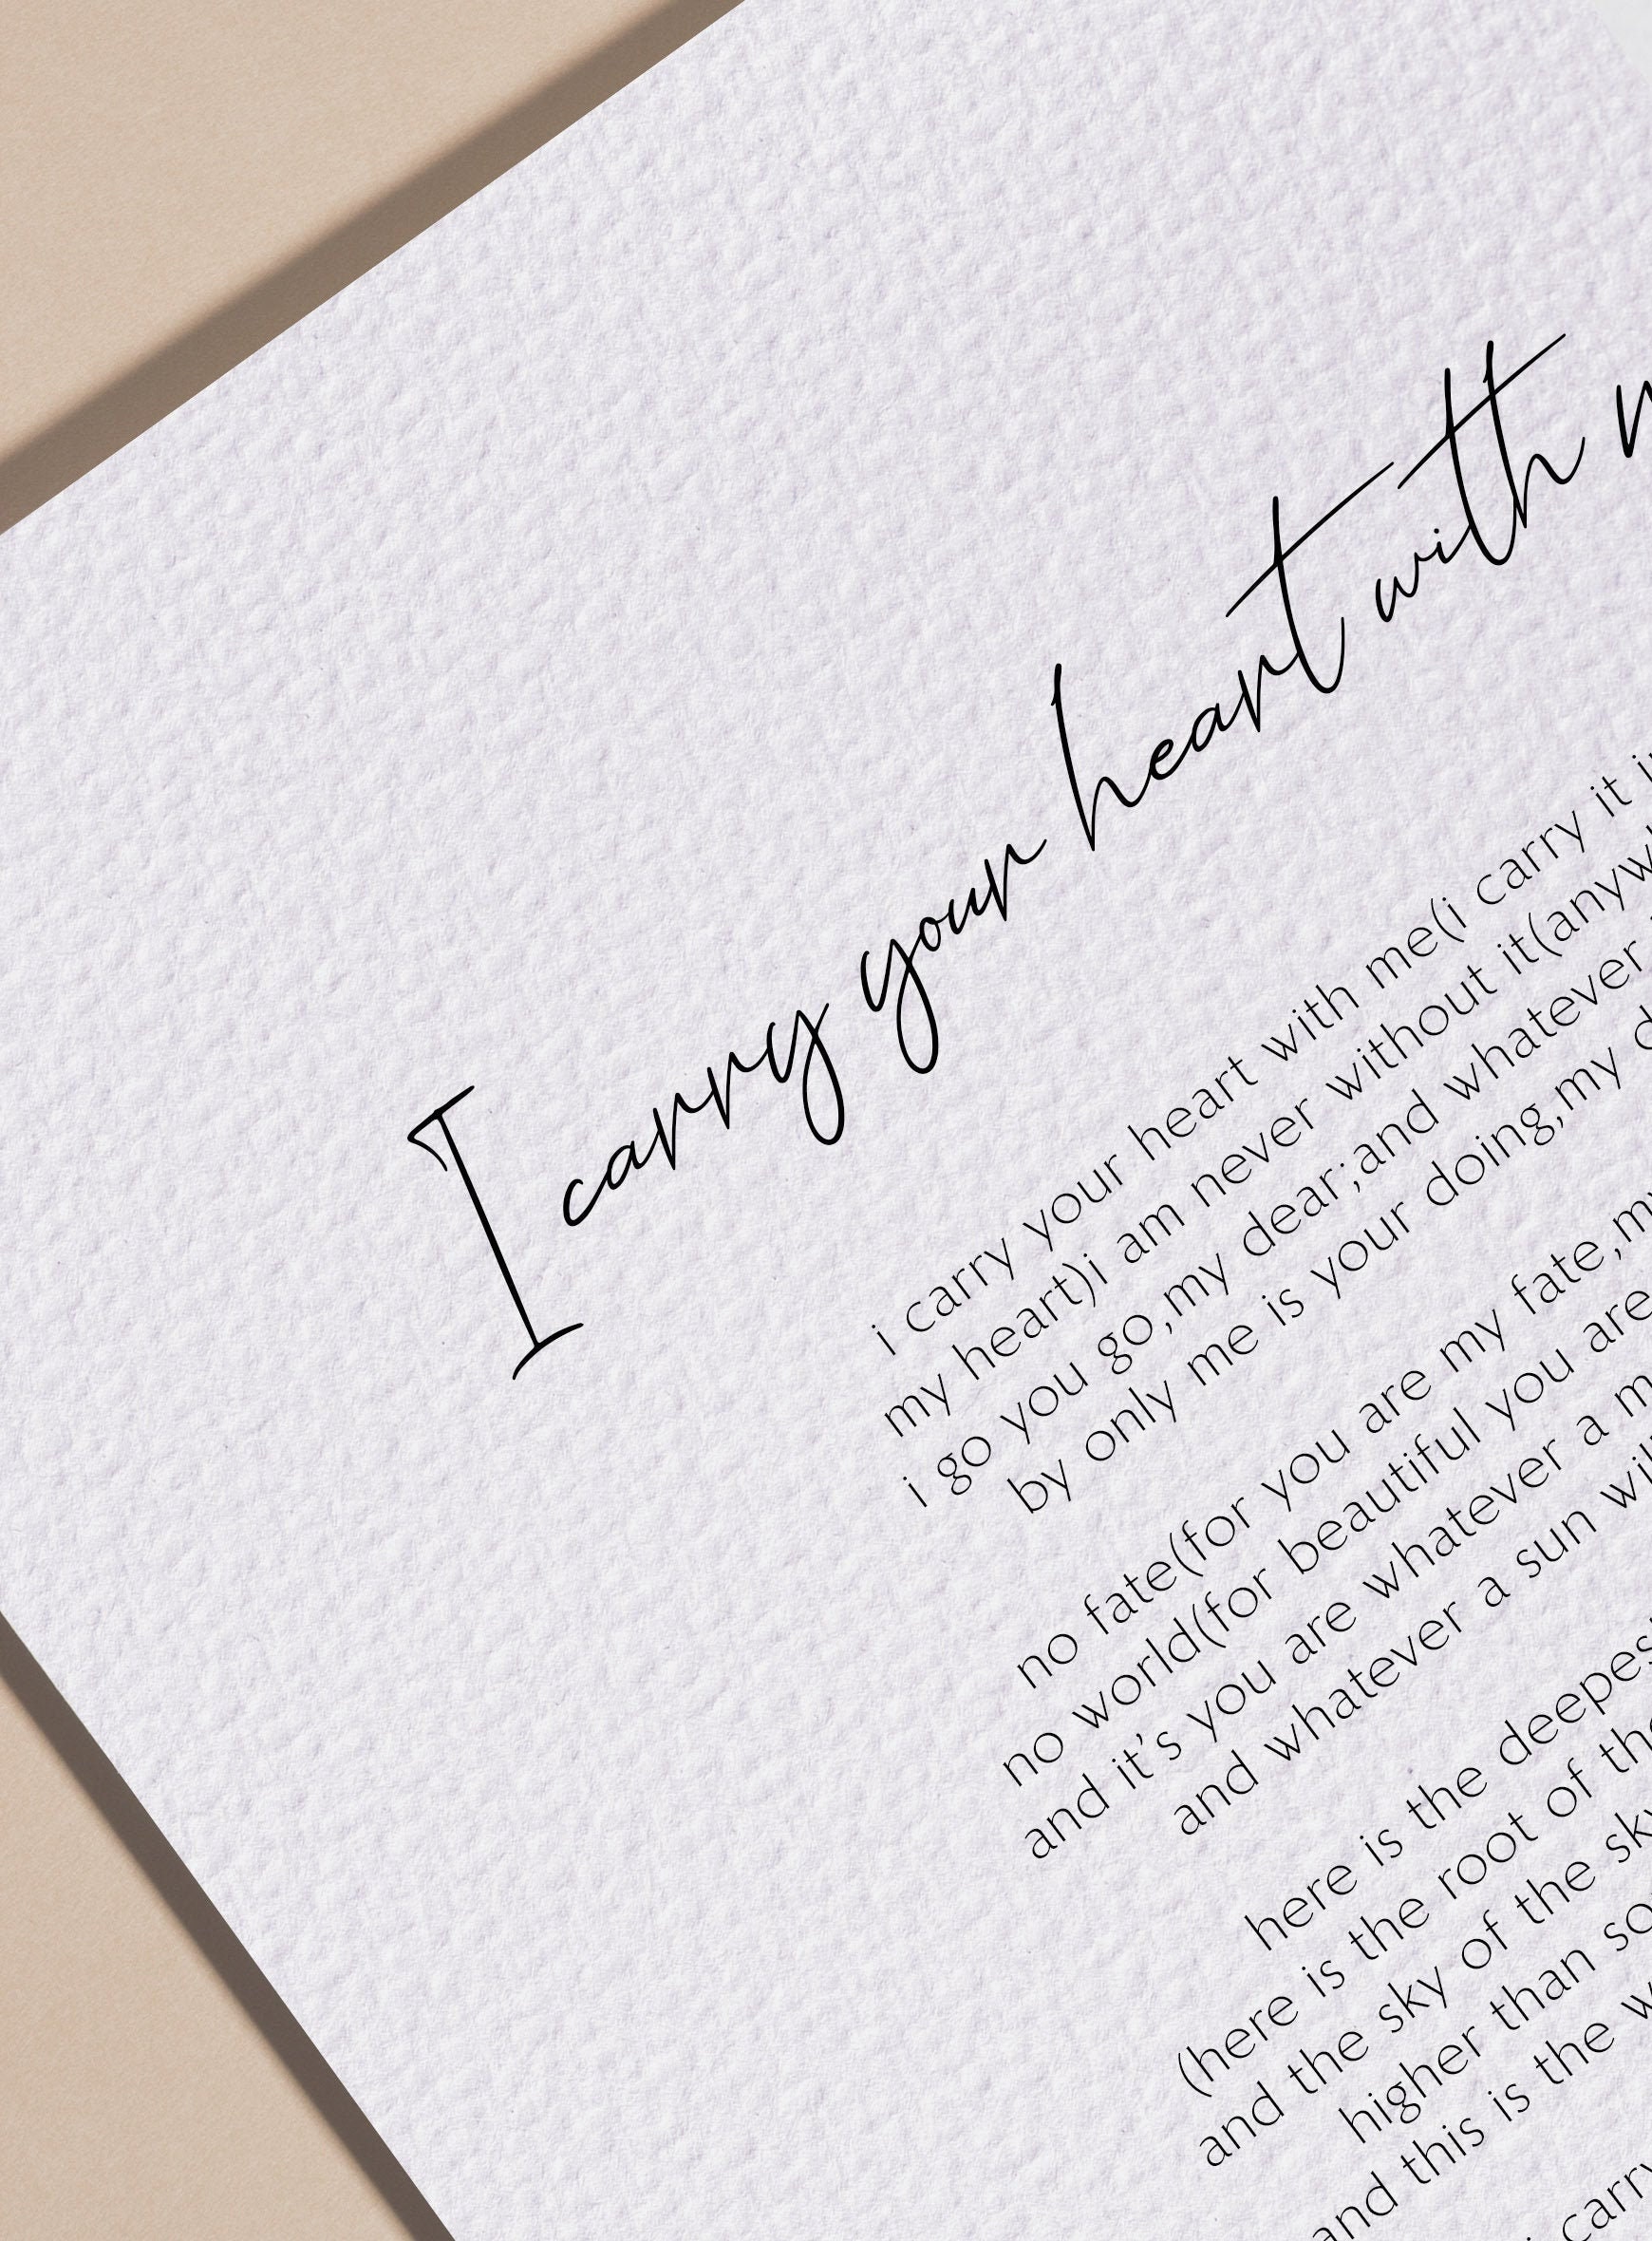 I carry your heart with
i carry your heart with me(i carry it
my heart)i am never without it(
i go you go,my dear;and whatever
by only me is your doing,my
no fate(for you are my fate,
no world(for beautiful you are
and it's you are whatever a
and whatever a sun
here is the
(here is the root of
and the sky of the
higher than
and this is the
carry